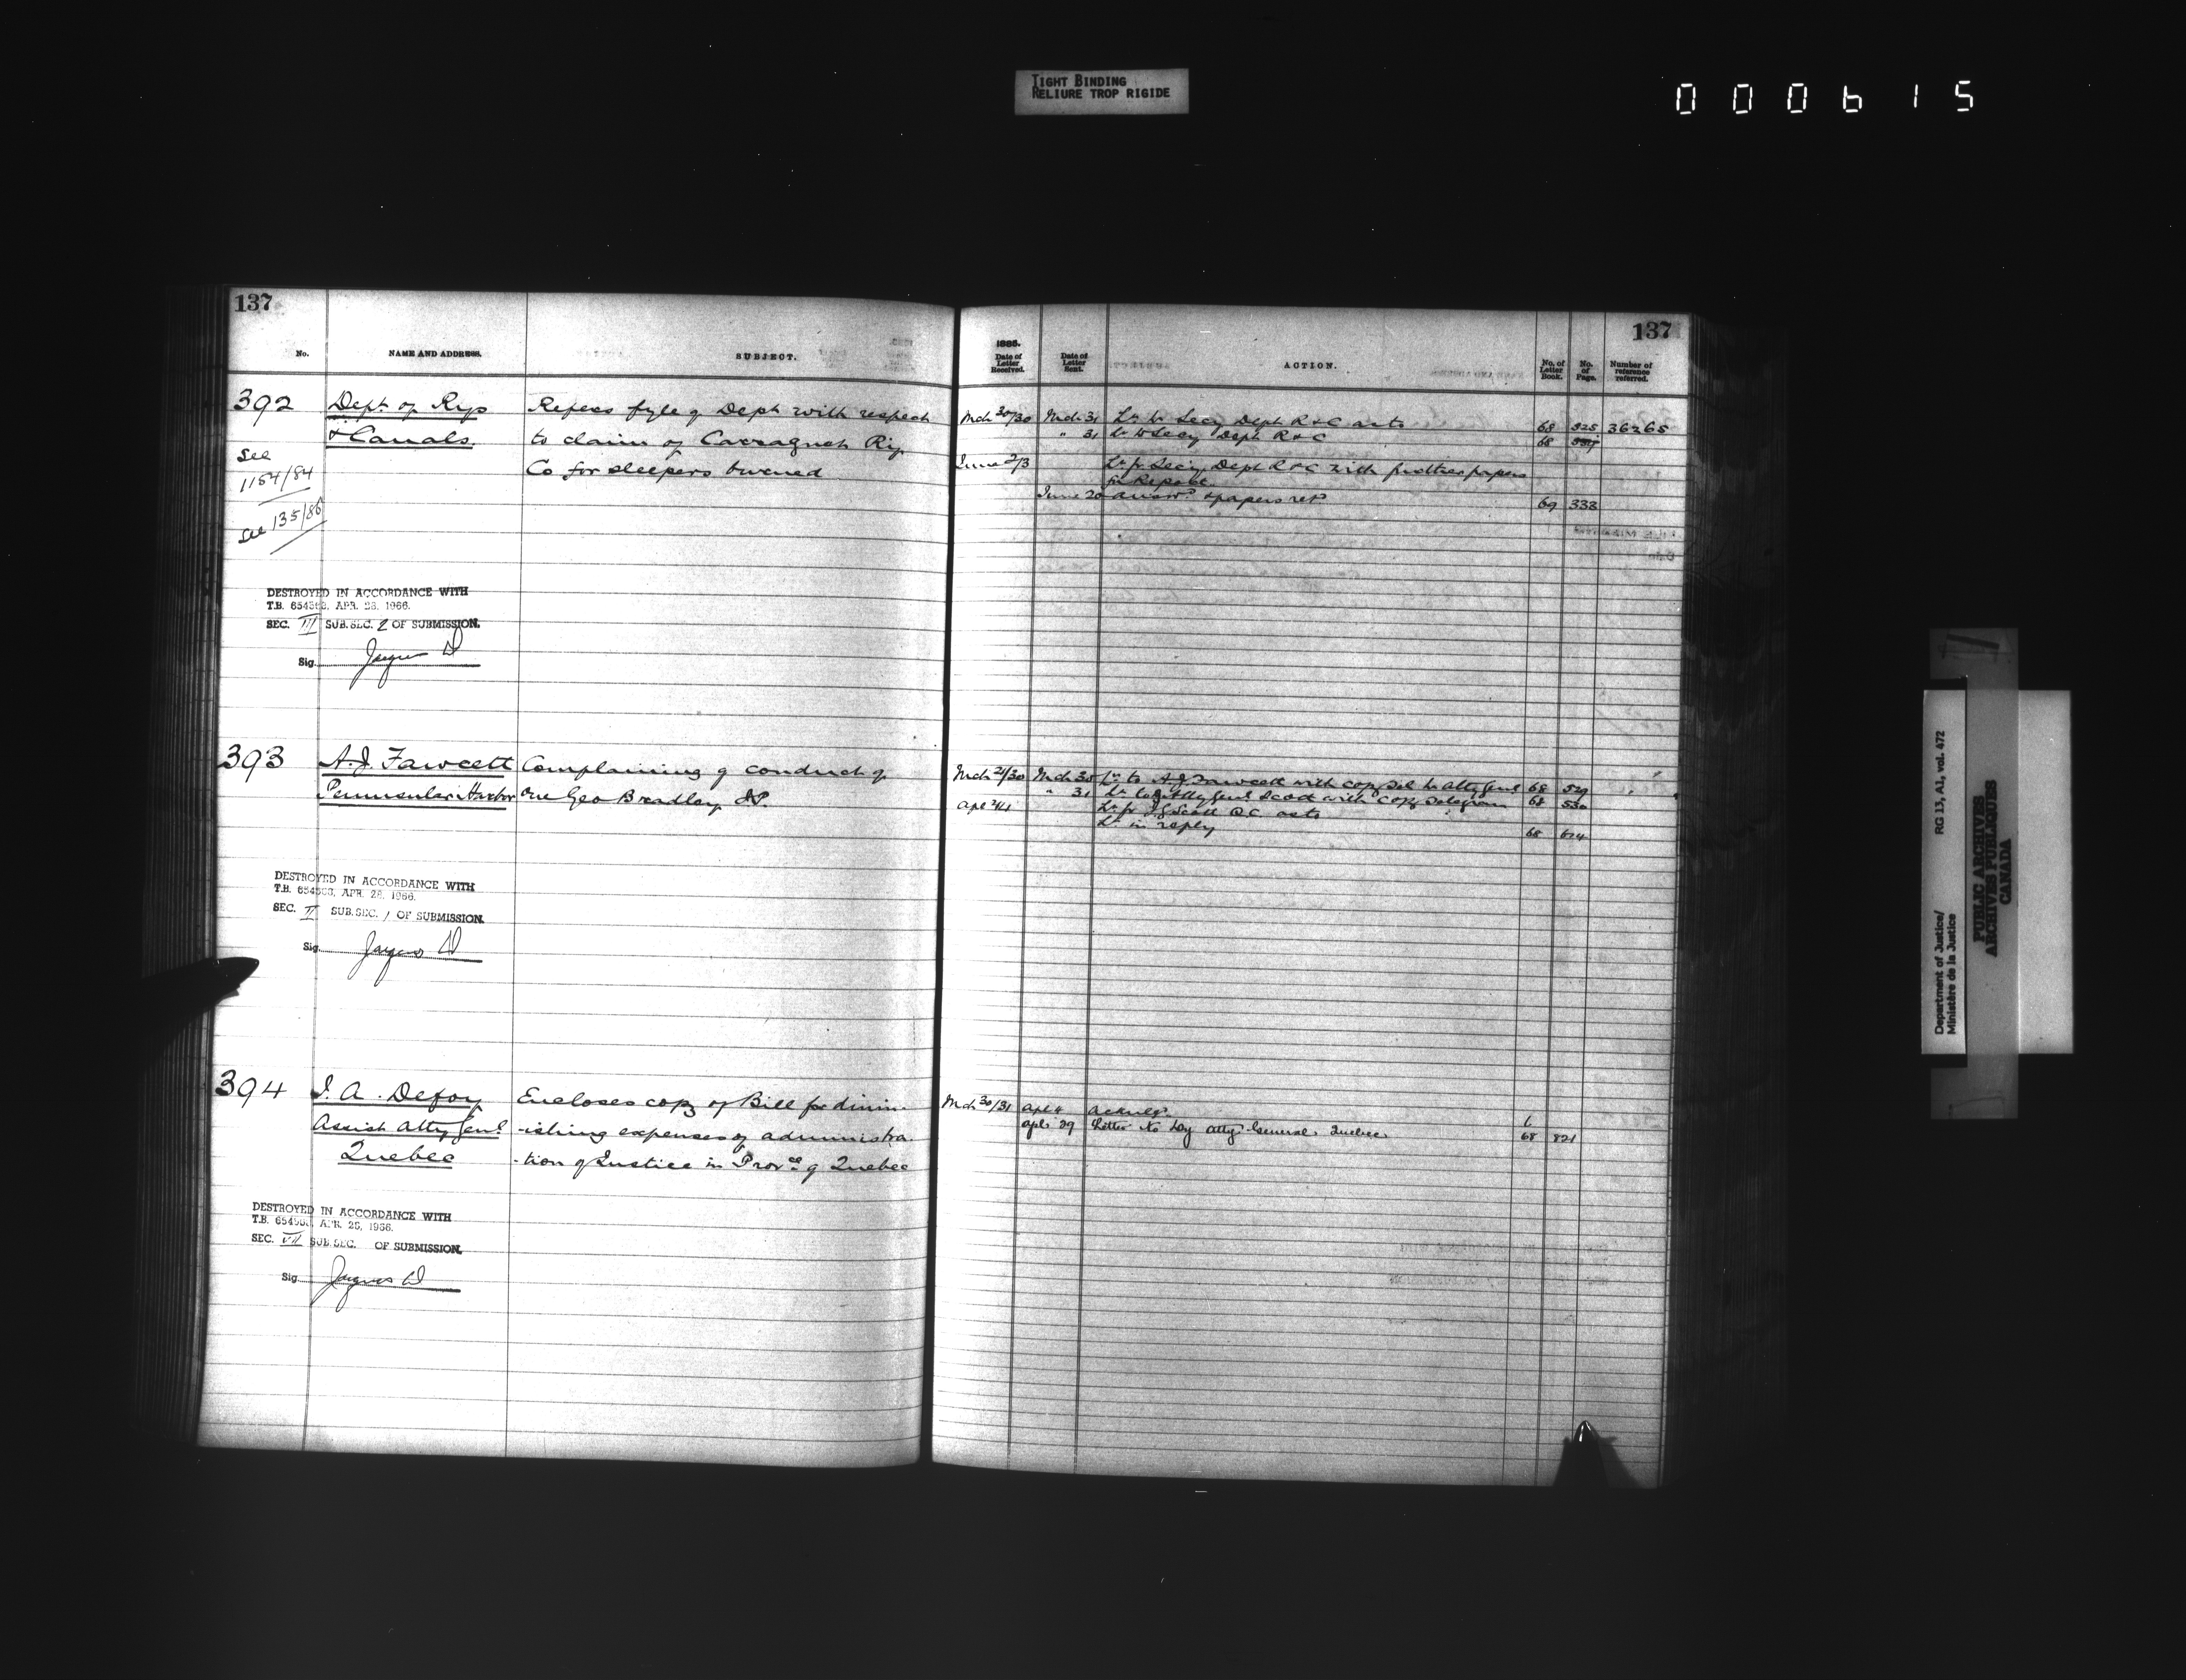 TIGHT BINDING
RELIURE TROP RIGIDE
000615
137
No. NAME AND ADDRESS. SUBJECT.
392 Dept. of Rys Refers fyle of Dept with respect
& Canals. to claim of Carraquet Ry.
Co for sleepers burned
see
1154/84
see 135/86
DESTROYED IN ACCORDANCE WITH
T.B. 654363, APR. 28, 1966.
SEC. III SUB.SEC. 2 OF SUBMISSION.
Sig.
393 A.J. Fawcett Complaining of conduct of
Peninsular Harbor one Geo Bradley JP.
DESTROYED IN ACCORDANCE WITH
T.B. APR. 28, 1966.
SEC. II SUB.SEC. 1 OF SUBMISSION.
Sig.
394 J. A. Defoy Encloses copy of Bill for dimin-
Assist Atty Genl. -ishing expenses of administra-
Quebec -tion of Justice in Provce of Quebec
DESTROYED IN ACCORDANCE WITH
T.B. APR. 1966.
SEC. VII SUB.SEC. OF SUBMISSION.
Sig.
137
1885.
Date of Letter Received. Date of Letter Sent. ACTION. No. of Letter Book. No. of Page. Number of reference referred.
Mch 30/30 Mch 31 Lr. to Secy Dept R & C as to 68 525 36265
" 31 Lr. to Secy Dept R & C 68
June 2/3 Lr. fr. Secy Dept R & C with further papers
for Report
June 20 answd. & papers retd 69 333
Mch 21/30 Mch 30 Lr. to A.J. Fawcett with copy tel to Atty Genl 68 529
" 31 Lr. to Atty Genl Scott with copy telegram 68 530
Apl Lr. fr. J G Scott Q.C. as to
Lr. in reply 68 614
Mch 30/31 Apl 4 Acknlg.
Apl 29 Letter to Dy Atty. General Quebec 68 821
Department of Justice/ RG 13, A1, vol. 472
Ministère de la Justice
PUBLIC ARCHIVES
ARCHIVES PUBLIQUES
CANADA